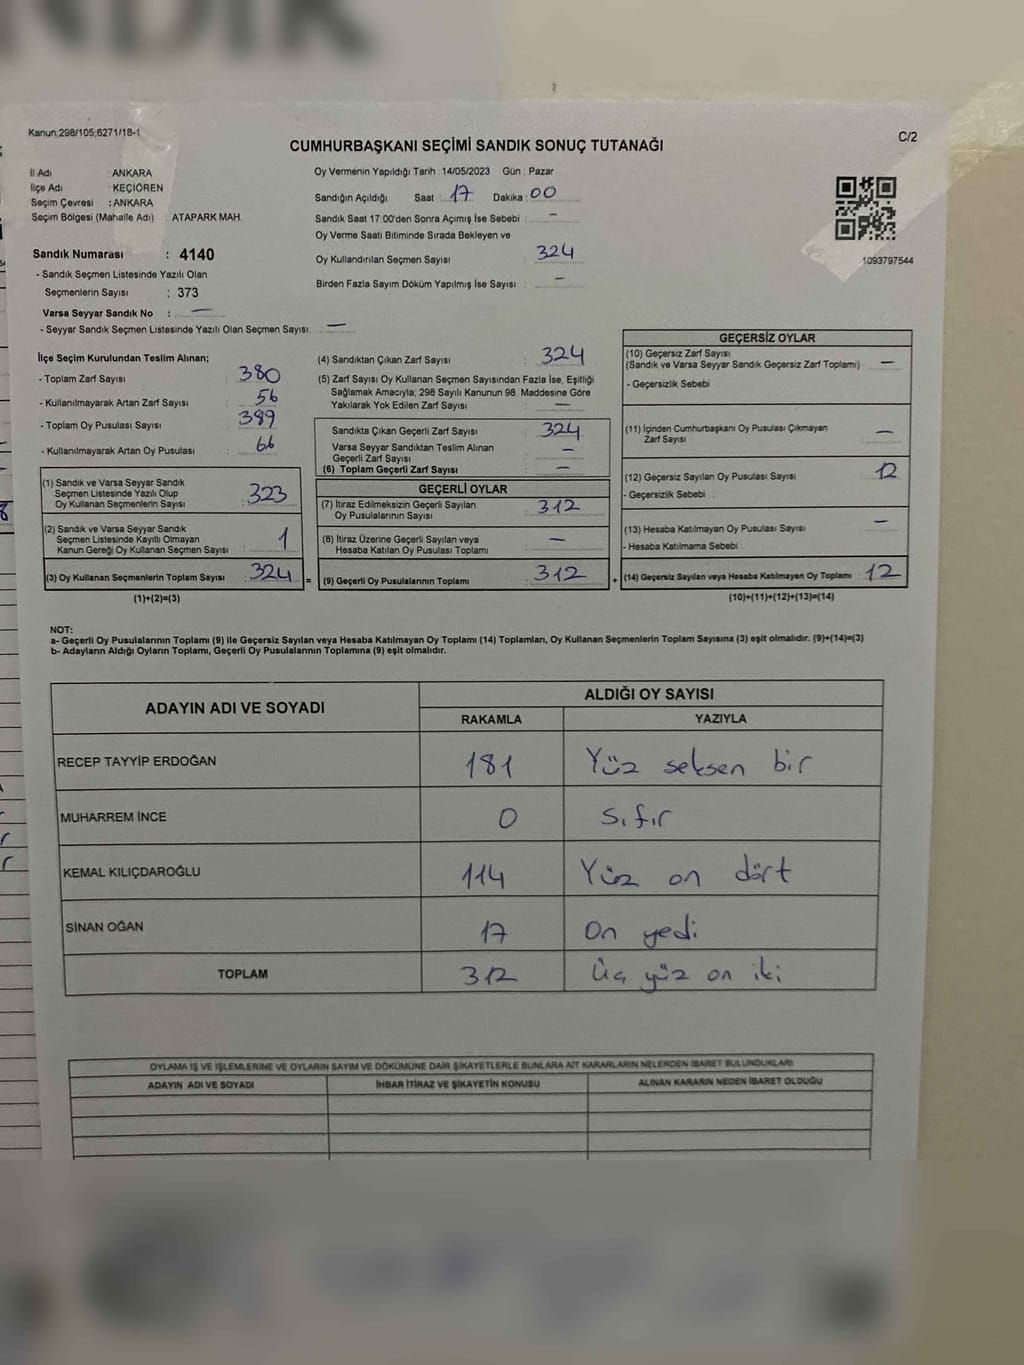 NDIK
Kanun;298/105;6271/18-1
C/2
CUMHURBAŞKANI SEÇİMİ SANDIK SONUÇ TUTANAĞI
İl Adı : ANKARA
İlçe Adı : KEÇİÖREN
Seçim Çevresi : ANKARA
Seçim Bölgesi (Mahalle Adı) : ATAPARK MAH.
Oy Vermenin Yapıldığı Tarih : 14/05/2023 Gün : Pazar
Sandığın Açıldığı Saat : 17 Dakika : 00
Sandık Saat 17:00'den Sonra Açımış İse Sebebi : -
Oy Verme Saati Bitiminde Sırada Bekleyen ve
Oy Kullandırılan Seçmen Sayısı : 324
Birden Fazla Sayım Döküm Yapılmış İse Sayısı : -
1093797544
Sandık Numarası : 4140
- Sandık Seçmen Listesinde Yazılı Olan
Seçmenlerin Sayısı : 373
Varsa Seyyar Sandık No : -
- Seyyar Sandık Seçmen Listesinde Yazılı Olan Seçmen Sayısı: -
İlçe Seçim Kurulundan Teslim Alınan;
- Toplam Zarf Sayısı : 380
- Kullanılmayarak Artan Zarf Sayısı : 56
- Toplam Oy Pusulası Sayısı : 389
- Kullanılmayarak Artan Oy Pusulası : 66
(1) Sandık ve Varsa Seyyar Sandık
Seçmen Listesinde Yazılı Olup
Oy Kullanan Seçmenlerin Sayısı : 323
(2) Sandık ve Varsa Seyyar Sandık
Seçmen Listesinde Kayıtlı Olmayan
Kanun Gereği Oy Kullanan Seçmen Sayısı : 1
(3) Oy Kullanan Seçmenlerin Toplam Sayısı : 324 =
(1)+(2)=(3)
(4) Sandıktan Çıkan Zarf Sayısı : 324
(5) Zarf Sayısı Oy Kullanan Seçmen Sayısından Fazla İse, Eşitliği
Sağlamak Amacıyla; 298 Sayılı Kanunun 98. Maddesine Göre
Yakılarak Yok Edilen Zarf Sayısı : -
Sandıkta Çıkan Geçerli Zarf Sayısı : 324
Varsa Seyyar Sandıktan Teslim Alınan
Geçerli Zarf Sayısı : -
(6) Toplam Geçerli Zarf Sayısı : -
GEÇERLİ OYLAR
(7) İtiraz Edilmeksizin Geçerli Sayılan
Oy Pusulalarının Sayısı : 312
(8) İtiraz Üzerine Geçerli Sayılan veya
Hesaba Katılan Oy Pusulası Toplamı : -
(9) Geçerli Oy Pusulalarının Toplamı : 312 +
GEÇERSİZ OYLAR
(10) Geçersiz Zarf Sayısı
(Sandık ve Varsa Seyyar Sandık Geçersiz Zarf Toplamı) : -
- Geçersizlik Sebebi :
(11) İçinden Cumhurbaşkanı Oy Pusulası Çıkmayan
Zarf Sayısı : -
(12) Geçersiz Sayılan Oy Pusulası Sayısı : 12
- Geçersizlik Sebebi :
(13) Hesaba Katılmayan Oy Pusulası Sayısı : -
- Hesaba Katılmama Sebebi :
(14) Geçersiz Sayılan veya Hesaba Katılmayan Oy Toplamı : 12
(10)+(11)+(12)+(13)=(14)
NOT:
a- Geçerli Oy Pusulalarının Toplamı (9) ile Geçersiz Sayılan veya Hesaba Katılmayan Oy Toplamı (14) Toplamları, Oy Kullanan Seçmenlerin Toplam Sayısına (3) eşit olmalıdır. (9)+(14)=(3)
b- Adayların Aldığı Oyların Toplamı, Geçerli Oy Pusulalarının Toplamına (9) eşit olmalıdır.
ADAYIN ADI VE SOYADI ALDIĞI OY SAYISI
RAKAMLA YAZIYLA
RECEP TAYYİP ERDOĞAN 181 Yüz seksen bir
MUHARREM İNCE 0 Sıfır
KEMAL KILIÇDAROĞLU 114 Yüz on dört
SİNAN OĞAN 17 On yedi
TOPLAM 312 Üç yüz on iki
OYLAMA İŞ VE İŞLEMLERİNE VE OYLARIN SAYIM VE DÖKÜMÜNE DAİR ŞİKAYETLERLE BUNLARA AİT KARARLARIN NELERDEN İBARET BULUNDUKLARI
ADAYIN ADI VE SOYADI İHBAR İTİRAZ VE ŞİKAYETİN KONUSU ALINAN KARARIN NEDEN İBARET OLDUĞU